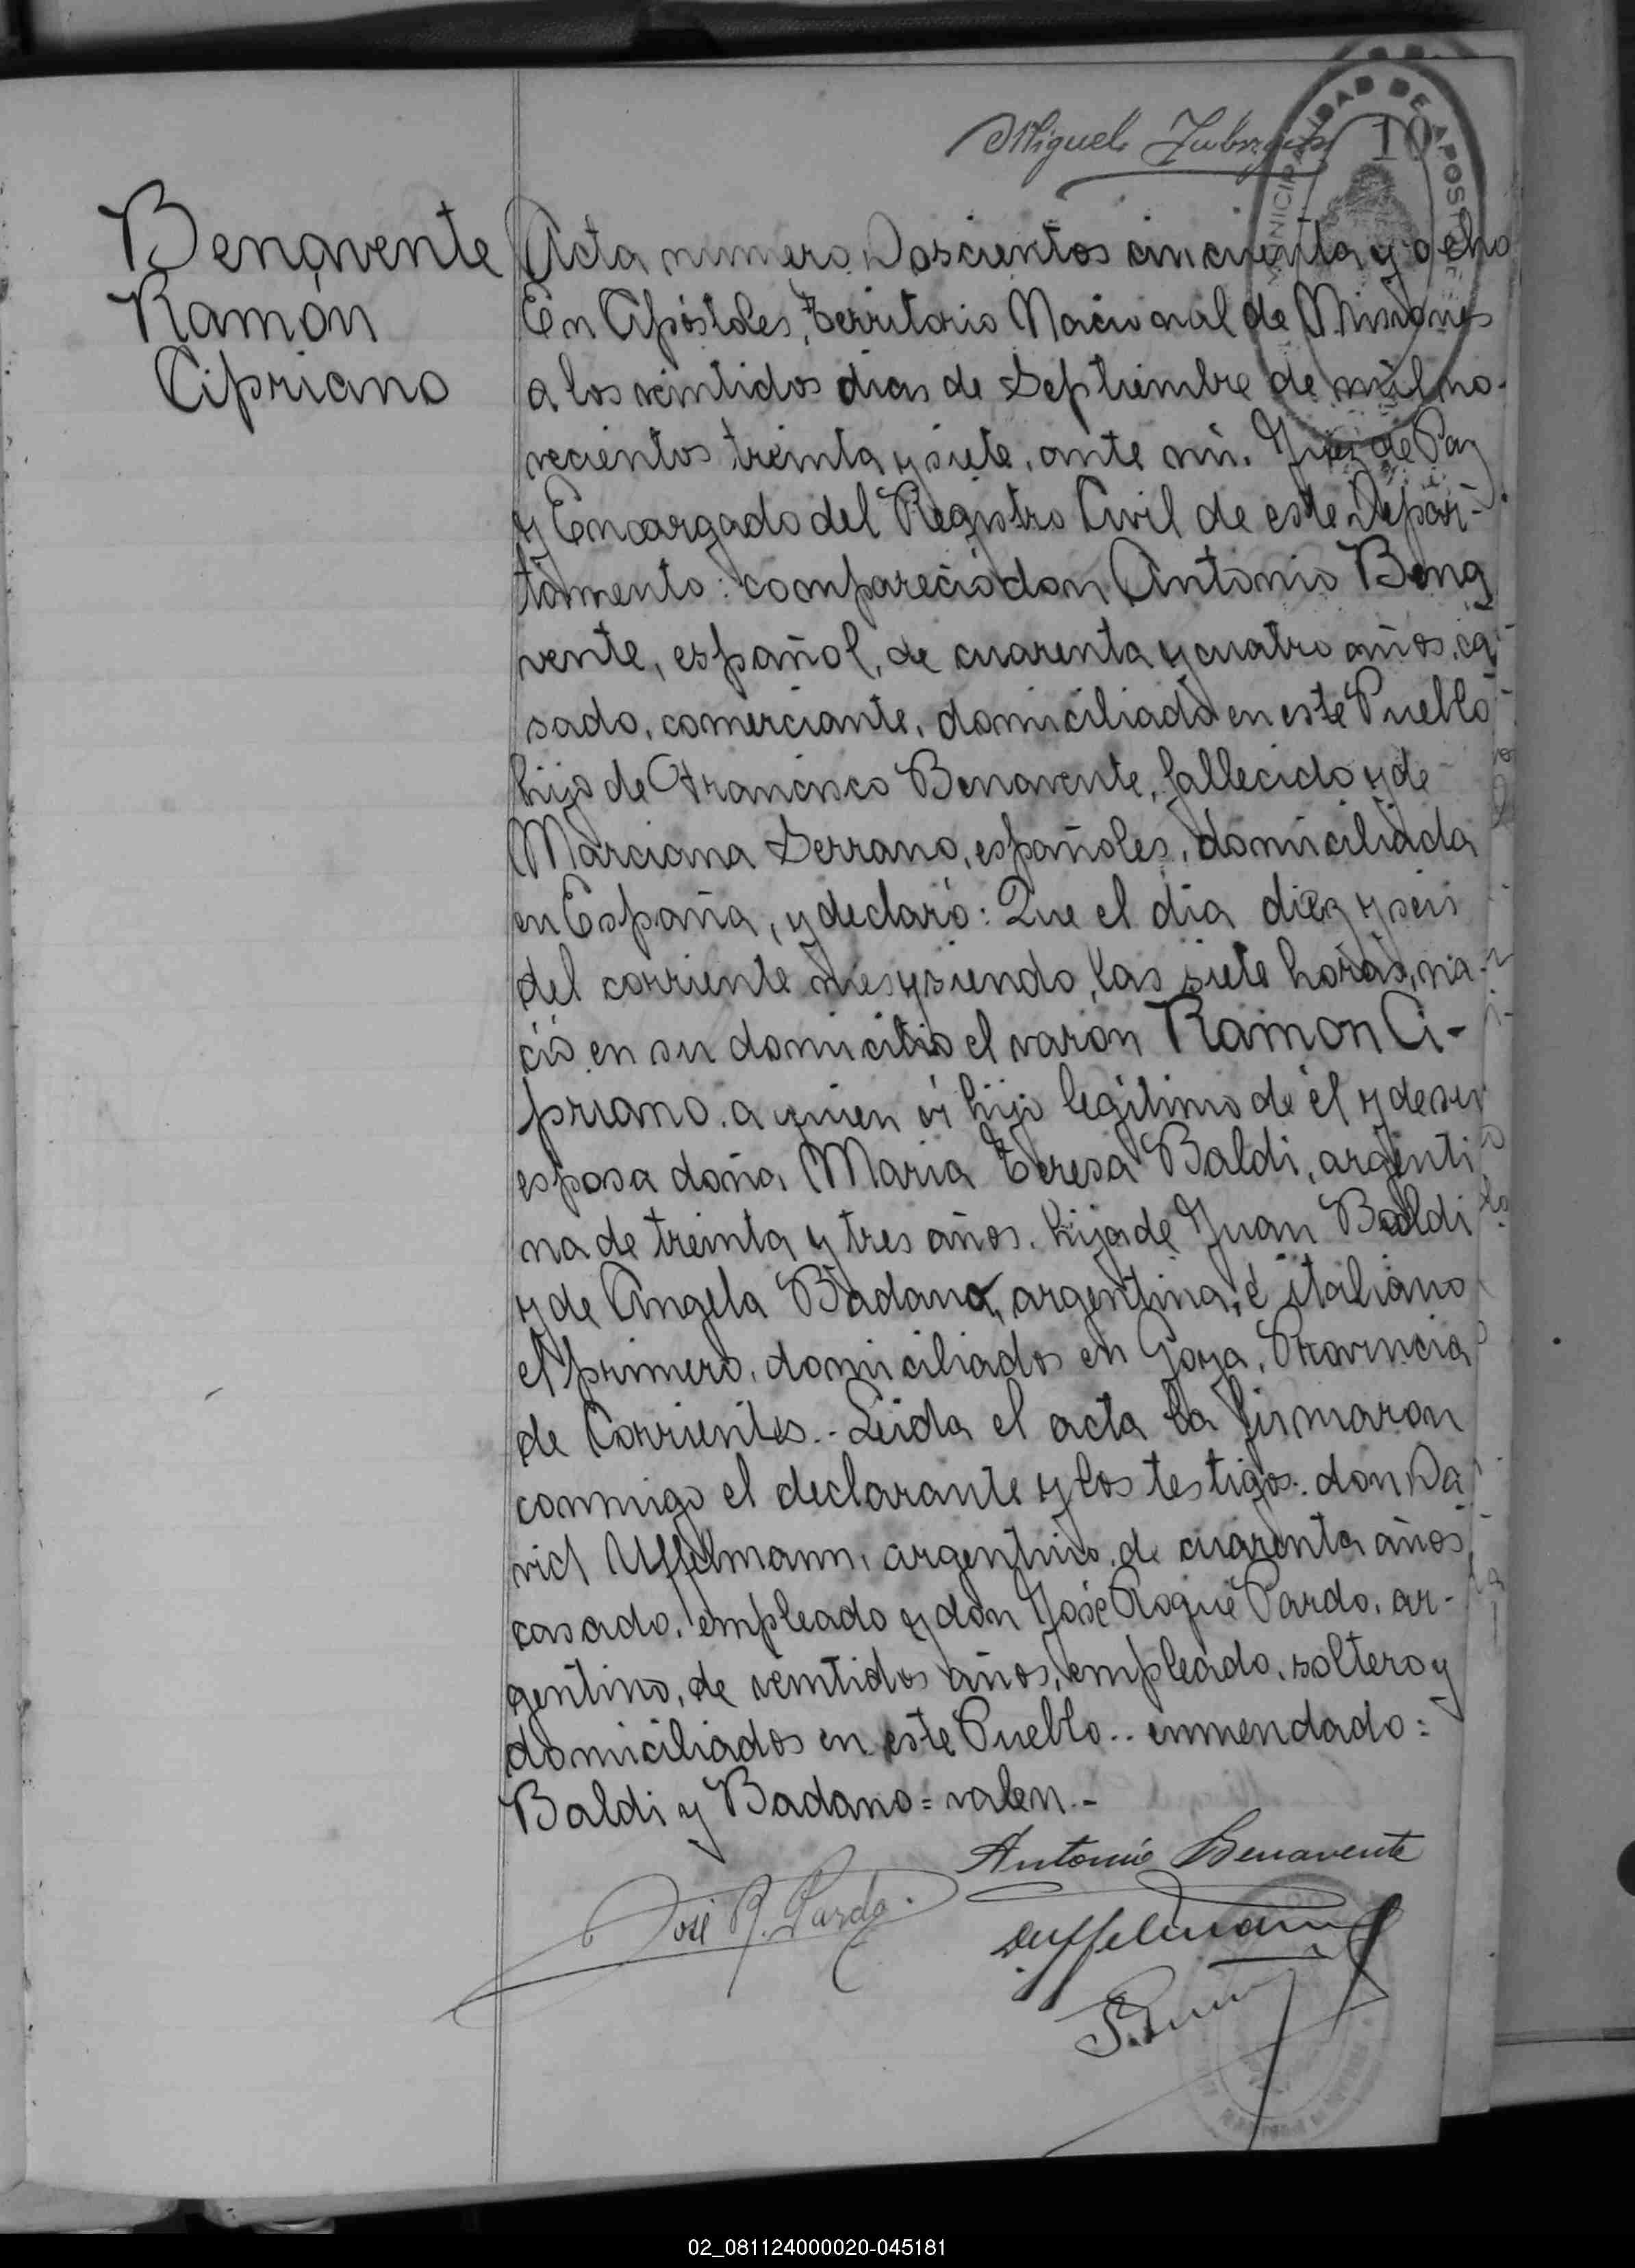 Miguel
10
MUNICIPALIDAD DE APOST
Benavente
Ramón
Cipriano
Acta numero Doscientos cincuenta y ocho
En Apóstoles, Territorio Nacional de Misiones
a los veintidos dias de Septiembre de mil no-
vecientos treinta y siete, ante mi, Juez de Paz
y Encargado del Registro Civil de este Depar-
tamento: compareció don Antonio Bena
vente, español, de cuarenta y cuatro años, ca-
sado, comerciante, domiciliado en este Pueblo
hijo de Francisco Benavente, fallecido y de
Marciana Serrano, españoles, domiciliada
en España, y declaró: Que el dia diez y seis
del corriente mes y siendo las siete horas, na-
ció en su domicilio el varon Ramon Ci-
priano. a quien vi hijo legítimo de él y de su
esposa doña Maria Teresa Baldi, argenti
na de treinta y tres años. hija de Juan Baldi
y de Angela Badano, argentina, é italiano
el primero, domiciliados en Goya, Provincia
de Corrientes.- Leida el acta la firmaron
conmigo el declarante y los testigos: don Da
vid Uffelmann, argentino, de cuarenta años
casado, empleado y don José Roque Pardo, ar-
gentino, de veintidos años, empleado, soltero y
domiciliados en este Pueblo.. enmendado:
Baldi y Badano = valen.-
Antonio Benavente
José R. Pardo.
D Uffelmann
02_081124000020-045181